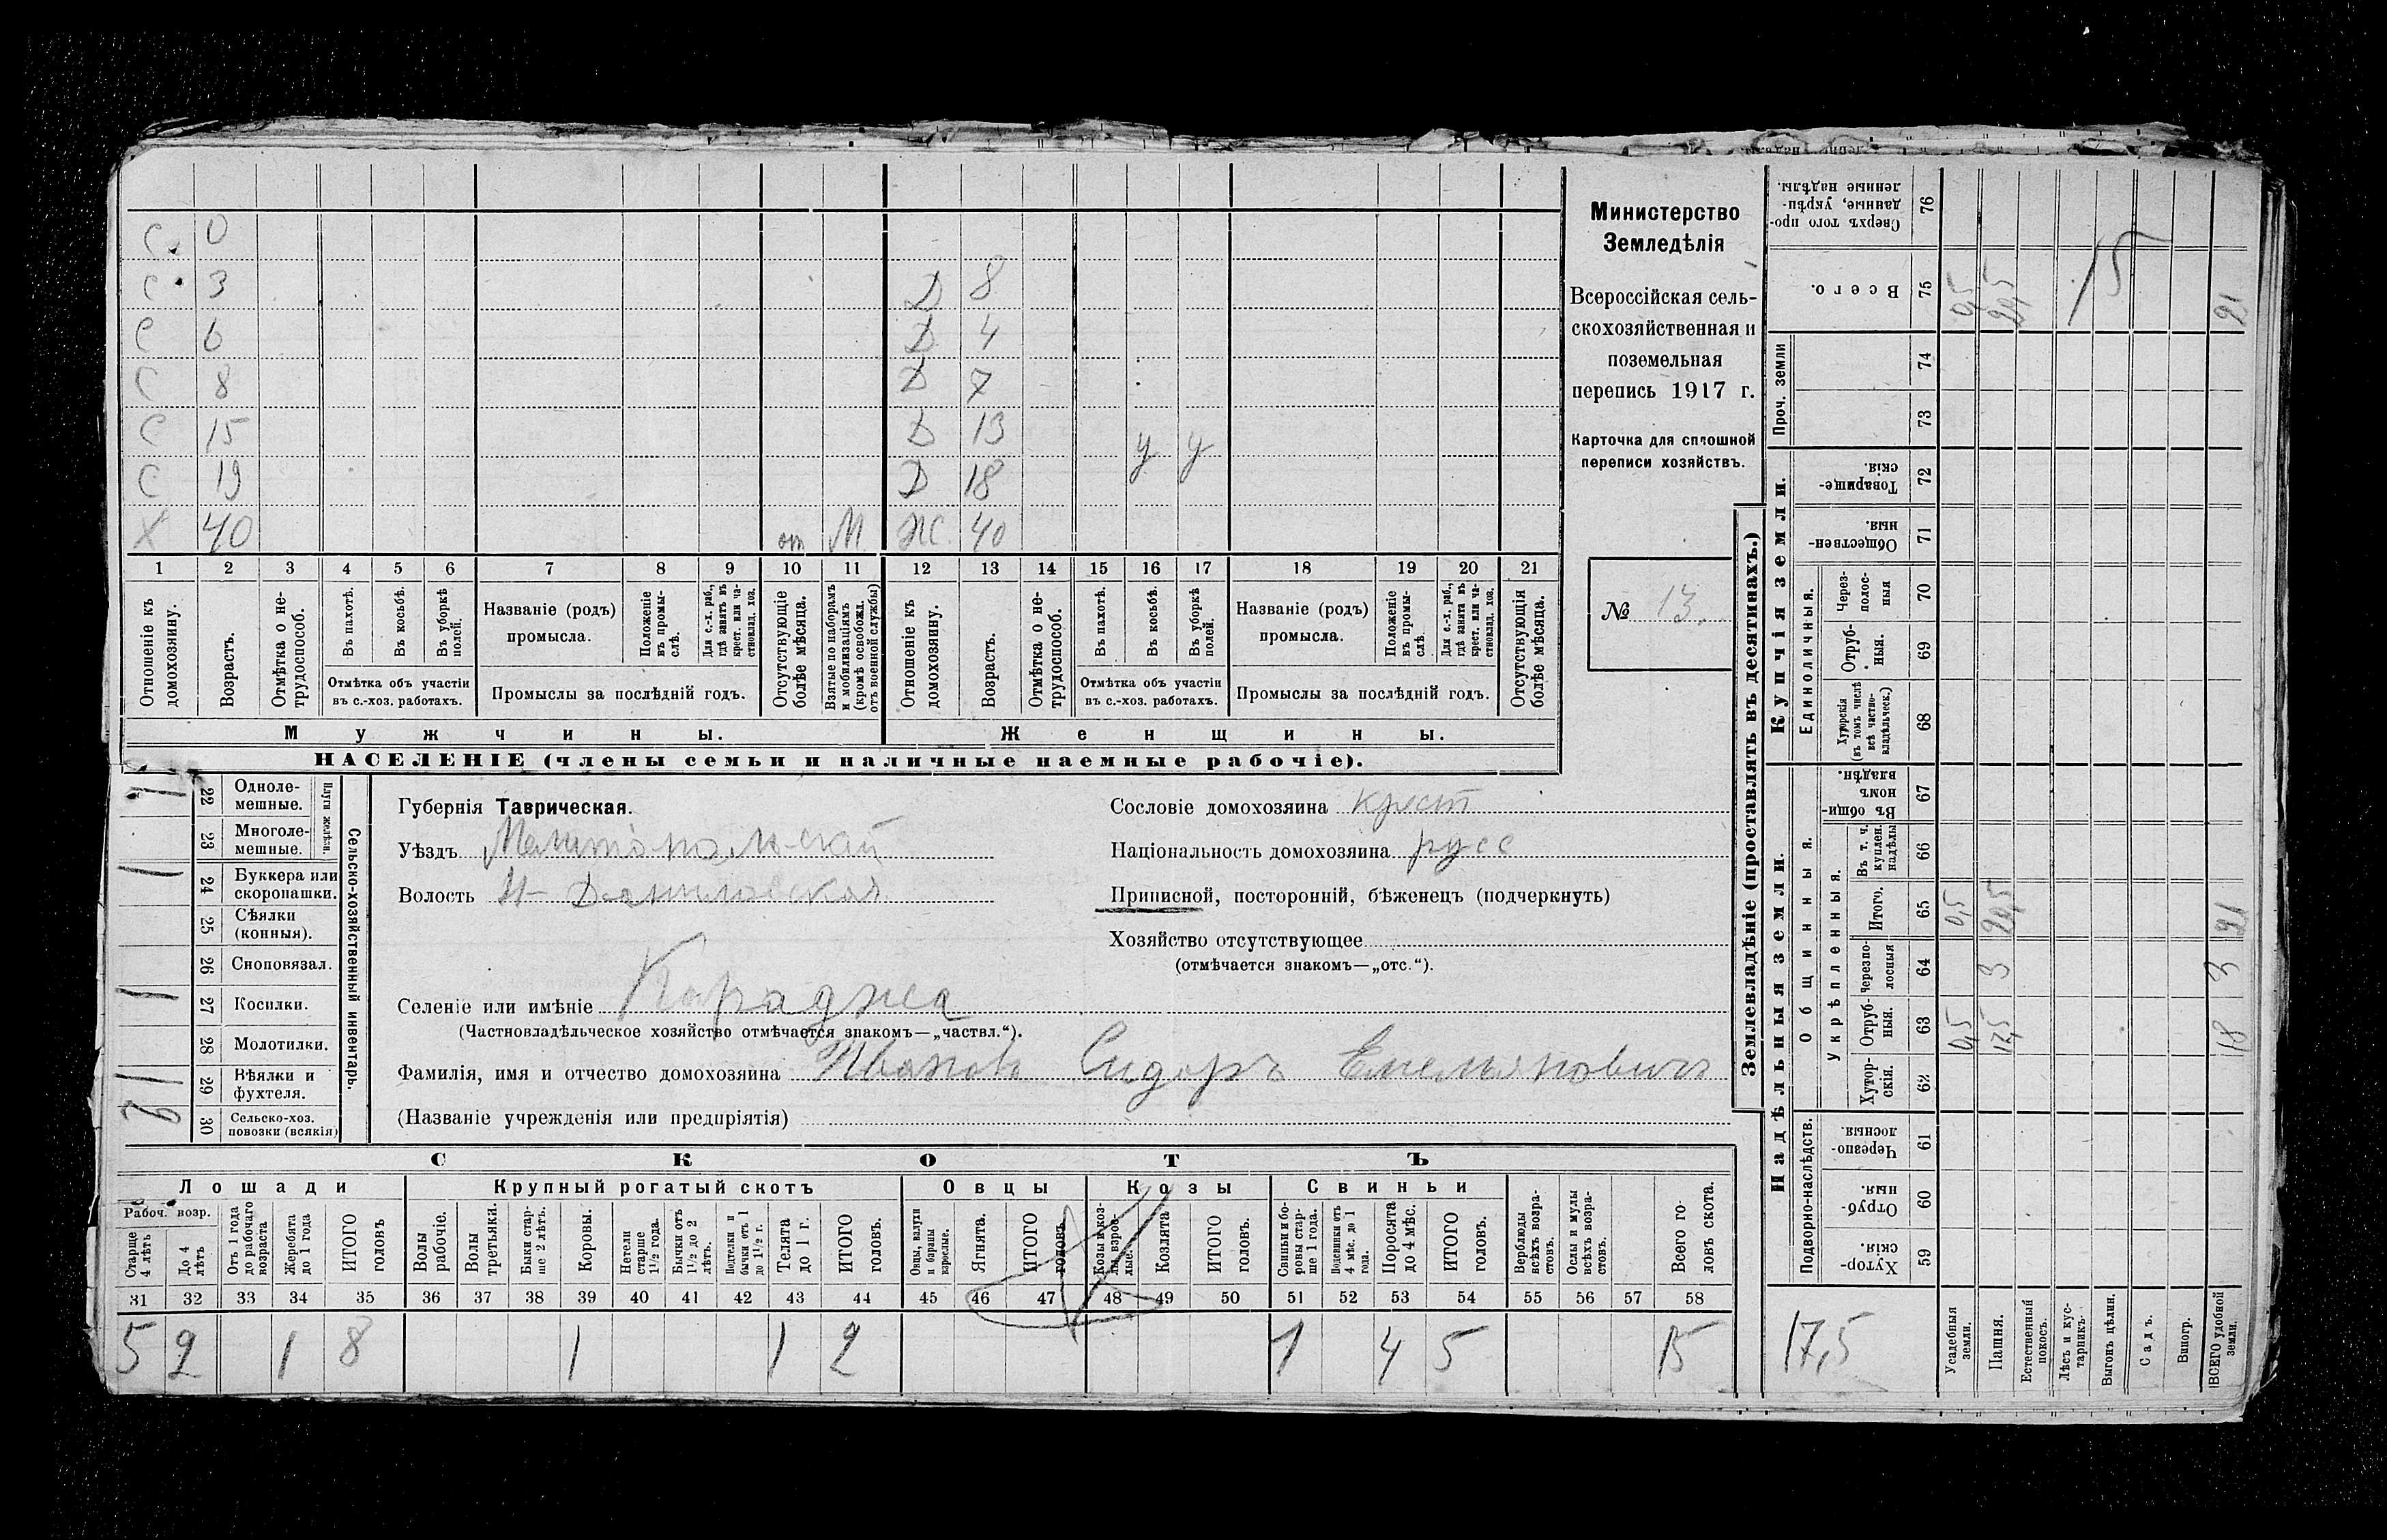 С. 0
С. 3 Д 8
С 6 Д 4
С 8 Д 7
С 15 Д 13
С 19 Д 18 у у
Х 40 от М Ж 40
1 2 3 4 5 6 7 8 9 10 11 12 13 14 15 16 17 18 19 20 21
Отношеніе къ домохозяину.
Возрастъ.
Отмѣтка о не-трудоспособ.
Въ пахотѣ.
Въ косьбѣ.
Въ уборкѣ полей.
Отмѣтка объ участіи въ с.-хоз. работахъ.
Названіе (родъ) промысла.
Положеніе въ промы-слѣ.
Для с.-х. раб., гдѣ занятъ въ крест. или ча-стновлад. хоз.
Промыслы за послѣдній годъ.
Отсутствующіе болѣе мѣсяца.
Взятые по наборамъ и мобилизаціямъ (кромѣ освобожд. отъ военной службы)
Отношеніе къ домохозяину.
Возрастъ.
Отмѣтка о не-трудоспособ.
Въ пахотѣ.
Въ косьбѣ.
Въ уборкѣ полей.
Отмѣтка объ участіи въ с.-хоз. работахъ.
Названіе (родъ) промысла.
Положеніе въ промы-слѣ.
Для с.-х. раб., гдѣ занята въ крест. или ча-стновлад. хоз.
Промыслы за послѣдній годъ.
Отсутствующія болѣе мѣсяца.
Мужчины. Женщины.
НАСЕЛЕНІЕ (члены семьи и наличные наемные рабочіе).
Министерство
Земледѣлія
Всероссійская сель-
скохозяйственная и
поземельная
перепись 1917 г.
Карточка для сплошной
переписи хозяйствъ.
№ 13.
Сельско-хозяйственный инвентарь.
Плуги желѣзн.
1 22 Одноле-мешные.
23 Многоле-мешные.
1 24 Буккера или скоропашки.
25 Сѣялки (конныя).
26 Сноповязал.
1 27 Косилки.
28 Молотилки.
1 29 Вѣялки и фухтеля.
2 30 Сельско-хоз. повозки (всякія)
Губернія Таврическая.
Уѣздъ Мелитопольскай
Волость Н-Даниловская
Селеніе или имѣніе Караджа
(Частновладѣльческое хозяйство отмѣчается знакомъ—„частвл.“).
Фамилія, имя и отчество домохозяина Ивановъ Сидоръ Емельяновичъ
(Названіе учрежденія или предпріятія)
Сословіе домохозяина крест
Національность домохозяина русс
Приписной, посторонній, бѣженецъ (подчеркнуть)
Хозяйство отсутствующее
(отмѣчается знакомъ—„отс.“).
СКОТЪ
Лошади Крупный рогатый скотъ Овцы Козы Свиньи
Рабоч. возр.
Старше 4 лѣтъ
До 4 лѣтъ
Отъ 1 года до рабочаго возраста
Жеребята до 1 года
ИТОГО головъ
Волы рабочіе.
Волы третьяки.
Быки стар-ше 2 лѣтъ.
Коровы.
Нетели старше 1½ года.
Бычки отъ 1½ до 2 лѣтъ.
Подтелки и бычки отъ 1 до 1½ г.
Телята до 1 г.
ИТОГО головъ.
Овцы, валухи и бараны взрослые.
Ягнята.
ИТОГО головъ.
Козы и коз-лы взрос-лые.
Козлята
ИТОГО головъ.
Свиньи и бо-ровы стар-ше 1 года.
Подсвинки отъ 4 мѣс. до 1 года.
Поросята до 4 мѣс.
ИТОГО головъ.
Верблюды всѣхъ возра-стовъ.
Ослы и мулы всѣхъ возра-стовъ.
Всего го-ловъ скота.
31 32 33 34 35 36 37 38 39 40 41 42 43 44 45 46 47 48 49 50 51 52 53 54 55 56 57 58
5 2 1 8 1 1 2 1 4 5 15
Землевладѣніе (проставлять въ десятинахъ.)
Надѣльныя земли. Купчія земли. Проч. земли
Подворно-наслѣдств.
Общинныя.
Укрѣпленныя.
Единоличныя.
Хутор-скія. 59
Отруб-ныя. 60
Черезпо-лосныя 61
Хутор-скія. 62
Отруб-ныя. 63 0,5 17,5 18
Черезпо-лосныя 64 3 3
Итого. 65 0,5 20,5 21
Въ т. ч. куплен. надѣлы 66
Въ общи-номъ владѣн. 67
Хуторскія (въ томъ числѣ всѣ частно-владѣльческ.) 68
Отруб-ныя. 69
Через-полос-ныя 70
Обществен-ныя. 71
Товарище-скія. 72
73
74
Всего. 75 0,5 20,5 15 21
Сверхъ того про-данные, укрѣп-ленные надѣлы. 76
17,5
Усадебныя земли.
Пашня.
Естественный покосъ.
Лѣсъ и кус-тарникъ.
Выгонъ цѣлин.
Садъ.
Виногр.
ВСЕГО удобной земли.